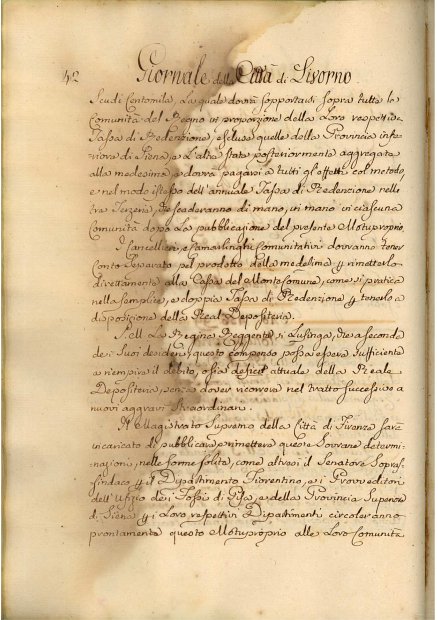 42 Giornale della Città di Livorno
Scudi Centomila, La quale dovrà sopportarsi sopra tutte le
Comunità del Regno in proporzione della Loro respettiva
Tassa di Redenzione, escluse quelle della Provincia infe-
riore di Siena, e L'altre state posteriormente aggregate
alla medesima, e dovrà pagarsi a tutti gl'effetti col metodo,
e nel modo istesso dell'annuale Tassa di Redenzione nelle
tre Terzerie, che scaderanno di mano, in mano in ciascuna
Comunità dopo La pubblicazione del presente Motuproprio.
I Cancellieri, e Camarlinghi Comunitativi dovranno tener
Conto Separato pel prodotto della medesima p rimetterlo
direttamente alla Cassa del Monte Comune, come si pratica
nella semplice, e doppia Tassa di Redenzione p tenerlo a
disposizione della Real Depositeria.
S. M. La Regina Reggente si Lusinga, che a seconda
dei Suoi desideri questo compenso possa essere sufficiente
a riempire il debito, o sia deficit attuale della Reale
Depositeria, senza dover ricorrere nel tratto successivo a
nuovi aggravi Straordinari.
Il Magistrato Supremo della Città di Firenze sarà
incaricato di pubblicare, e rimettere queste Sovrane determi-
nazioni, nelle forme solite, come altresì il Senatore Sopras-
sindaco p il Dipartimento Fiorentino, e i Provveditori
dell'Ufizio dei Fossi di Pisa, e della Provincia Superiore
di Siena p i Loro respettivi Dipartimenti circoleranno
prontamente questo Motuproprio alle Loro Comunità